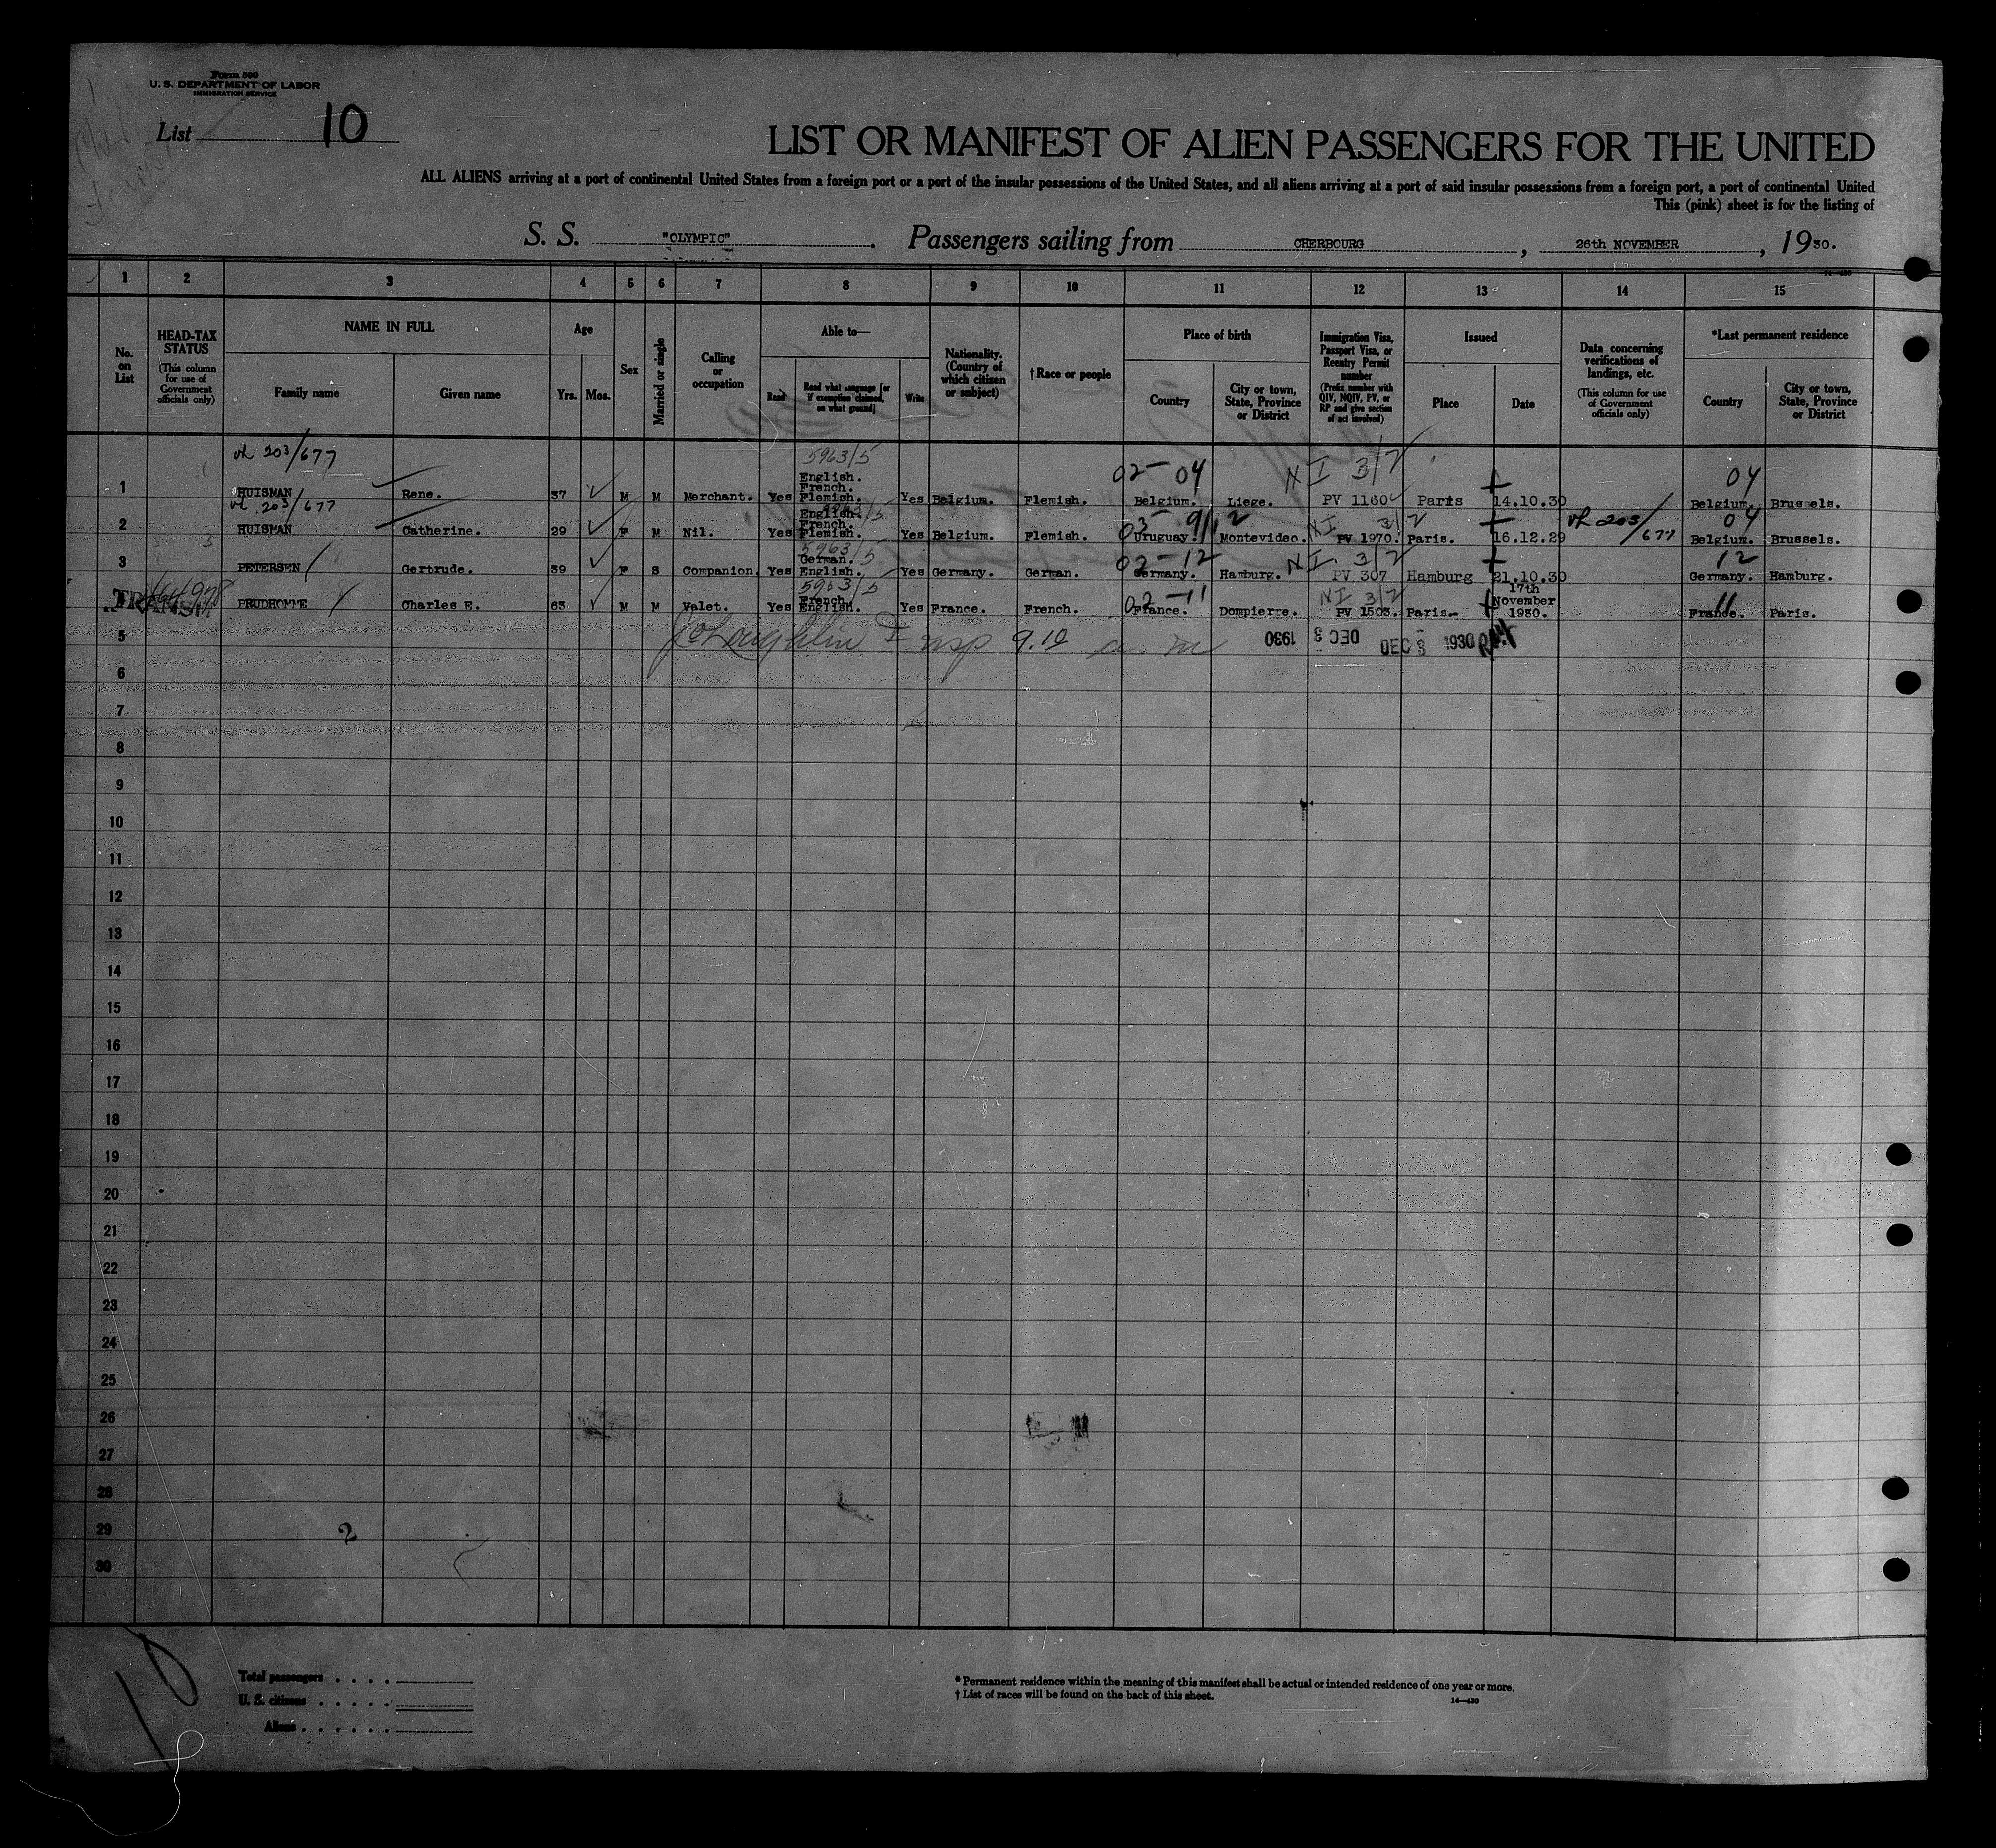 Form 500
U. S. DEPARTMENT OF LABOR
IMMIGRATION SERVICE
List 10
LIST OR MANIFEST OF ALIEN PASSENGERS FOR THE UNITED
ALL ALIENS arriving at a port of continental United States from a foreign port or a port of the insular possessions of the United States, and all aliens arriving at a port of said insular possessions from a foreign port, a port of continental United
This (pink) sheet is for the listing of
S. S. "OLYMPIC". Passengers sailing from CHERBOURG, 26th NOVEMBER, 1930.
14—430
1 2 3 4 5 6 7 8 9 10 11 12 13 14 15
No. on List
HEAD-TAX STATUS
(This column for use of Government officials only)
NAME IN FULL
Family name
Given name
Age
Yrs. Mos.
Sex
Married or single
Calling or occupation
Able to—
Read
Read what language [or if exemption claimed, on what ground]
Write
Nationality. (Country of which citizen or subject)
†Race or people
Place of birth
Country
City or town, State, Province or District
Immigration Visa, Passport Visa, or Reentry Permit number
(Prefix number with QIV, NQIV, PV, or RP and give section of act involved)
Issued
Place
Date
Data concerning verifications of landings, etc.
(This column for use of Government officials only)
*Last permanent residence
Country
City or town, State, Province or District
203/677 5963/5 02-04 NI 3/2 04
1 HUISMAN Rene. 37 M M Merchant. Yes English. French. Flemish. Yes Belgium. Flemish. Belgium. Liege. PV 1160 Paris 14.10.30 Belgium. Brussels.
203/677 5963/5 03-9/12 NI 3/2 203/677 04
2 HUISMAN Catherine. 29 F M Nil. Yes English. French. Flemish. Yes Belgium. Flemish. Uruguay. Montevideo. PV 1970. Paris. 16.12.29 Belgium. Brussels.
5963/5 02-12 NI 3/2 12
3 PETERSEN Gertrude. 39 F S Companion. Yes German. English. Yes Germany. German. Germany. Hamburg. PV 307 Hamburg 21.10.30 Germany. Hamburg.
5963/5 02-11 NI 3/2 11
TRANSIT PRUDHOMME Charles E. 63 M M Valet. Yes French. English. Yes France. French. France. Dompierre. PV 1503. Paris. 17th November 1930. France. Paris.
5 Insp 9.10 a. m DEC 3 1930 DEC 3 1930
6
7
8
9
10
11
12
13
14
15
16
17
18
19
20
21
22
23
24
25
26
27
28
29 2
30
10
Total passengers
U. S. citizens
Aliens
* Permanent residence within the meaning of this manifest shall be actual or intended residence of one year or more.
† List of races will be found on the back of this sheet.
14—430